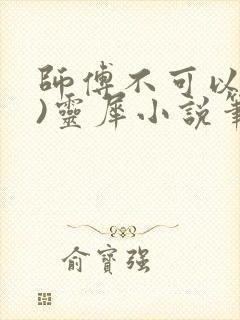 師傅不可以
)靈犀小說筆
俞寶强